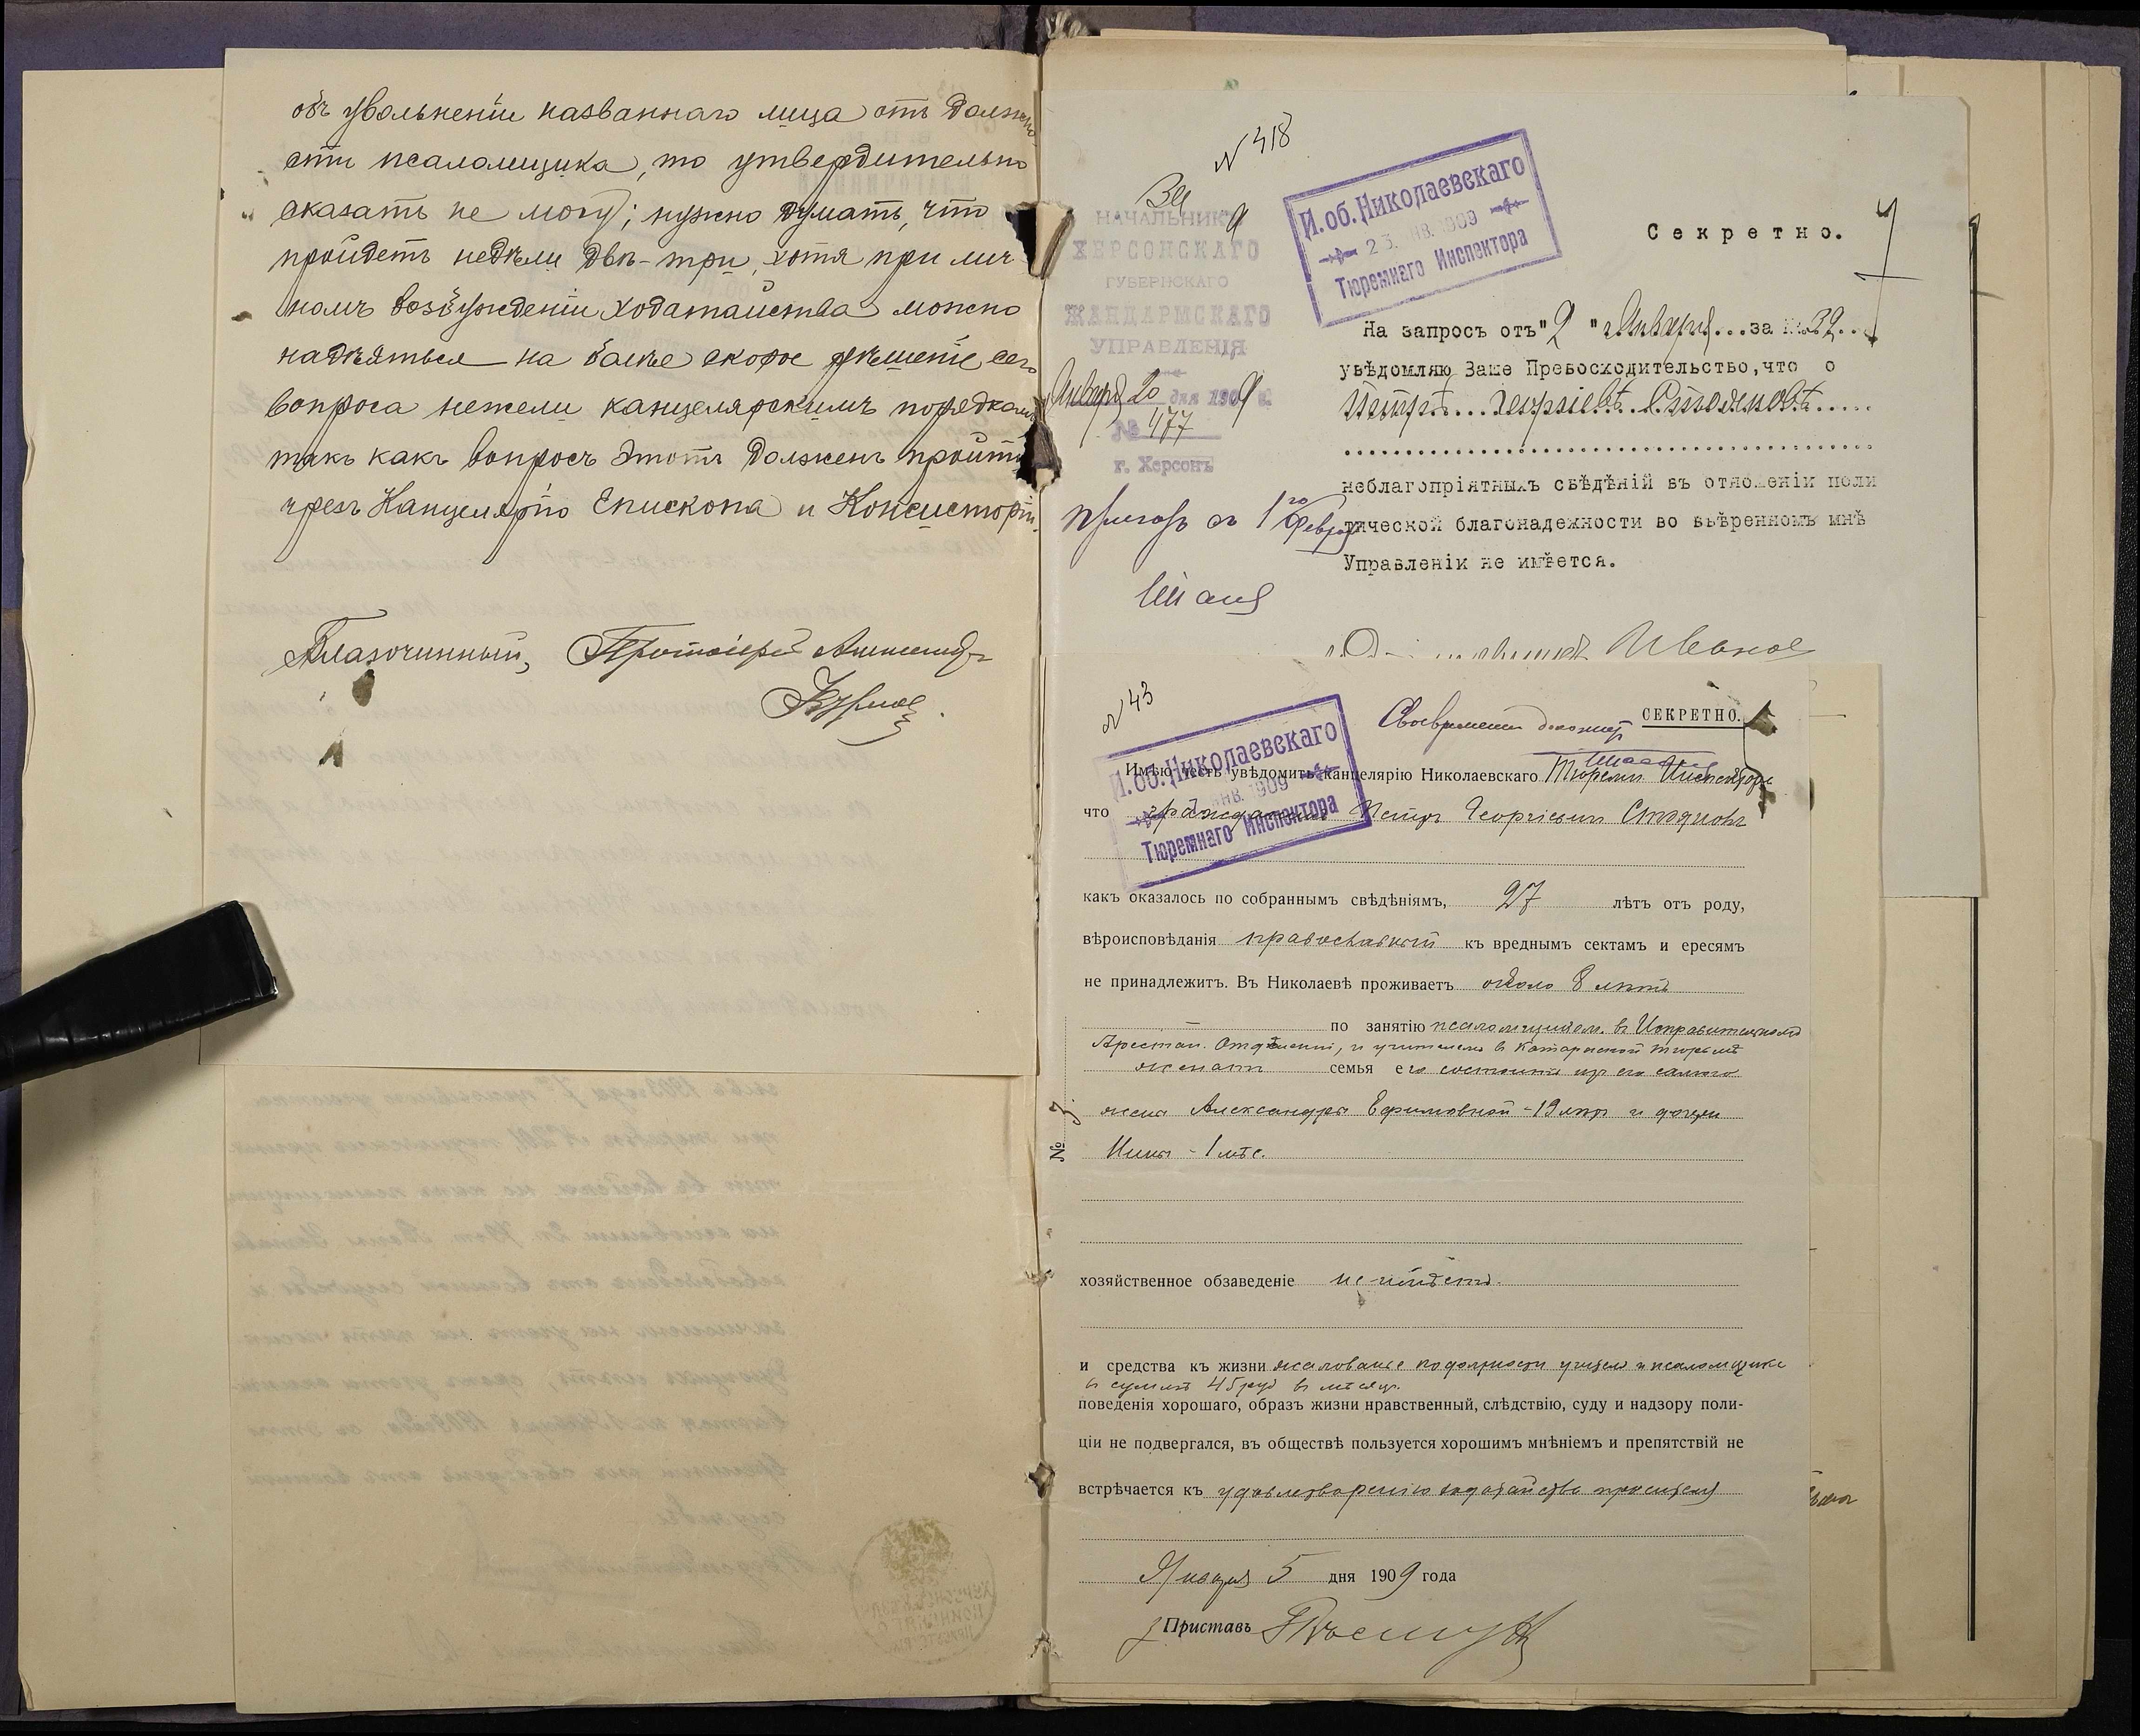 объ увольненіи названнаго лица отъ должно
сти псаломщика, то утвердительно
сказать не могу; нужно думать, что
пройдетъ недѣли двѣ-три, хотя при лич
номъ возбужденіи ходатайства можно
надѣяться на болѣе скорое рѣшеніе сего
вопроса нежели канцелярскимъ порядкомъ
такъ какъ вопросъ этотъ долженъ пройти
чрезъ Канцелярію Епископа и Консисторію.
Благочинный, Протоіерей
№ 418
НАЧАЛЬНИКЪ
ХЕРСОНСКАГО
ГУБЕРНСКАГО
ЖАНДАРМСКАГО
УПРАВЛЕНІЯ
Января 20 дня 1909 г.
№ 477
г. Херсонъ
И.об. Николаевскаго
23 ЯНВ. 1909
Тюремнаго Инспектора
Секретно.
7
На запросъ отъ "2" Января...за №.32...
увѣдомляю Ваше Превосходительство, что о
Петрѣ...Георгіевѣ..Стояновѣ.....
неблагопріятныхъ свѣдѣній въ отношеніи поли
тической благонадежности во ввѣренномъ мнѣ
Управленіи не имѣется.
съ 1го Февр
Иванов
№ 43
И.об. Николаевскаго
ЯНВ. 1909
Тюремнаго Инспектора
Своевременно
СЕКРЕТНО.
Имѣю честь увѣдомить канцелярію Николаевскаго Тюремн Инспектора
что гражданинъ Петръ Георгіевич Стояновъ
какъ оказалось по собраннымъ свѣдѣніямъ, 27 лѣтъ отъ роду,
вѣроисповѣданія православный къ вреднымъ сектамъ и ересямъ
не принадлежитъ. Въ Николаевѣ проживаетъ около 8 лѣтъ
по занятію псаломщикомъ въ Исправительномъ
Арестан. Отдѣленіи, и учителем в каторжной тюрьмѣ
женатъ семья его состоитъ из его самого
жены Александры Ефимовной - 19 лѣтъ и дочери
Нины - 1 мѣс.
№ 3
хозяйственное обзаведеніе не имѣетъ.
и средства къ жизни жалованье по должности учителя и псаломщика
в суммѣ 45 руб в мѣсяцъ.
поведенія хорошаго, образъ жизни нравственный, слѣдствію, суду и надзору поли-
ціи не подвергался, въ обществѣ пользуется хорошимъ мнѣніемъ и препятствій не
встрѣчается къ удовлетворенію ходатайства просителя
Января 5 дня 1909 года
Приставъ